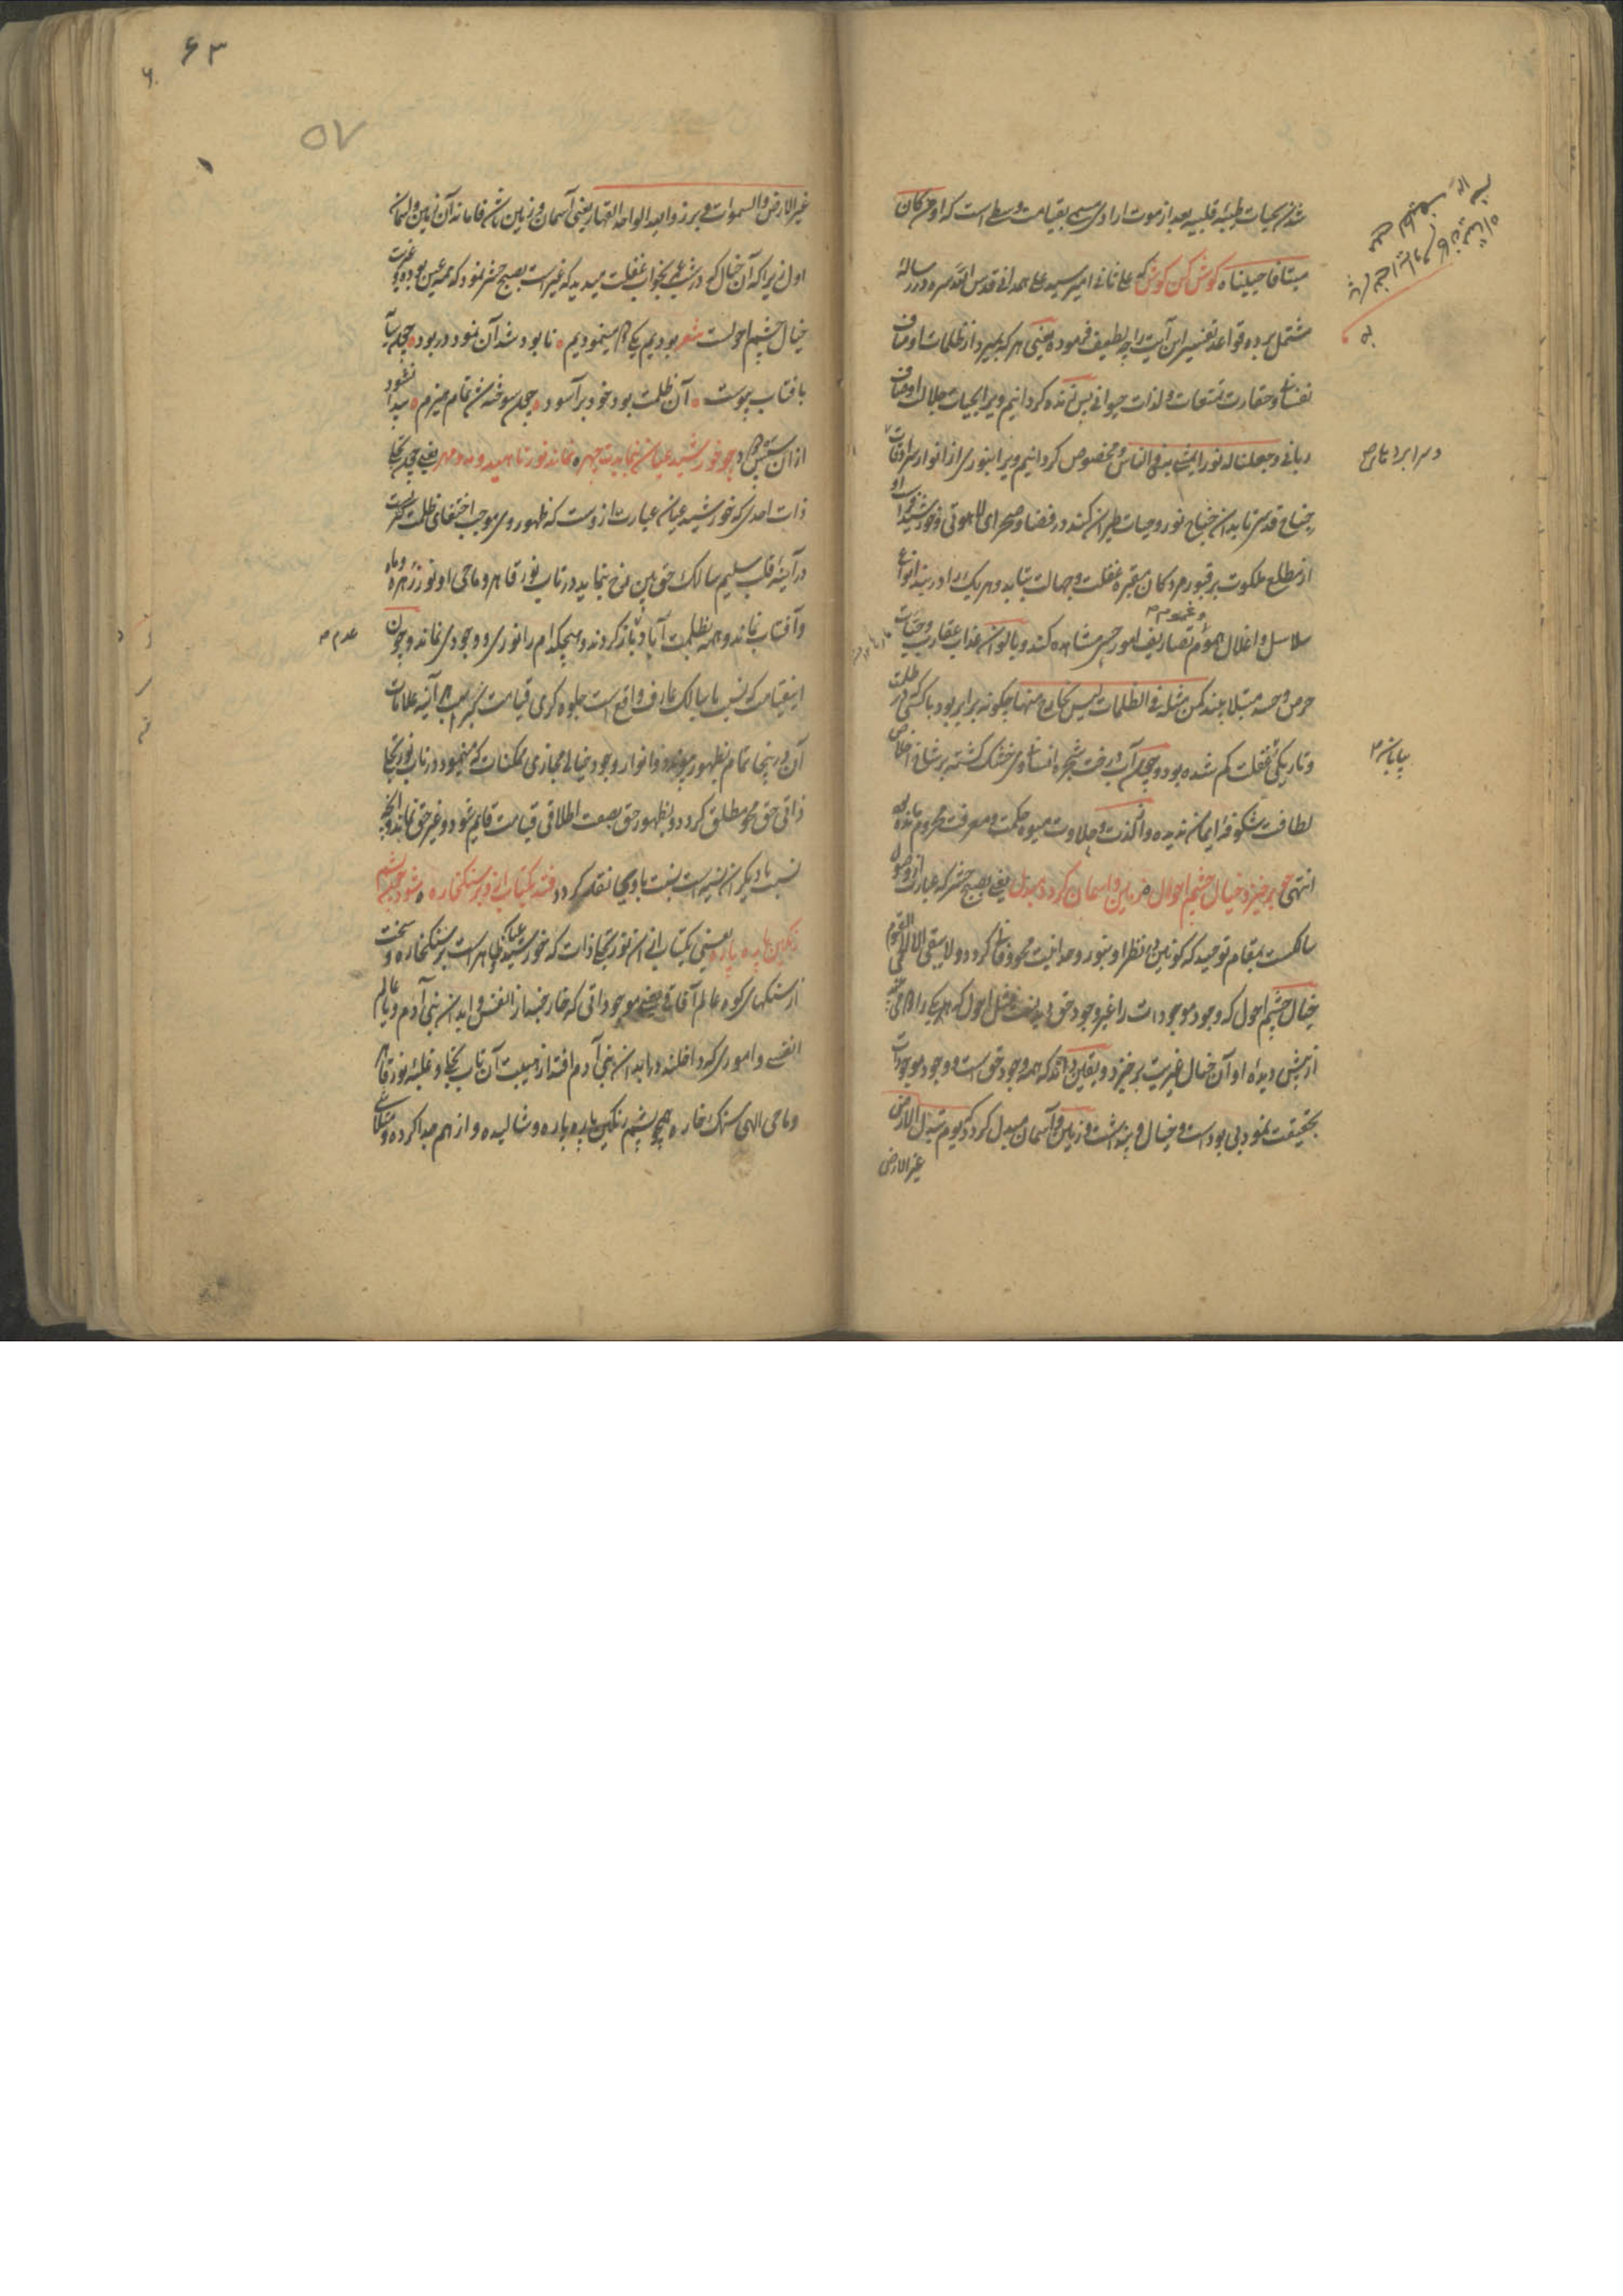 شدن بحیات طیبه قلبیه بعد از موت ارادی مسمی بقیامت وسطی است که او من کان
میتا فاحییناه کوش کن کوش که علی ثانی امیر سید علی همدانی قدس الله سره در رساله
مشتمل برده قواعد تفسیر این آیت را چه لطیف فرموده یعنی هر که بمیرد از ظلمات اوصاف
نفسانی و حقارت تمتعات و لذات حیوانی پس زنده کردانیم ویرا بحیات جلالت اوصاف
ربانی وجعلنا له نورا یمشی به فی الناس و مخصوص کردانیم ویرا بنوری از انوار سرادقات
جناح قدس تا بدان جناح نور و حیات طیران کند در فضا و صحرای لاهوتی و خورشید
از مطلع ملکوت بر قبور مردکان مقبره غفلت و جهالت بتابد و هر یک را در بند انواع
سلاسل و اغلال هموم و غموم تصاریف امور حسی مشاهده کند و بالوان عذاب عقارب و حیات
حرص و حسد مبتلا بیند کمن مثله فی الظلمات لیس بخارج منها چکونه برابر بود با کسی که در ظلمت
و تاریکی غفلت کم شده بود و چون آب رفت شجره انسانی وی خشک کشته بر شاخ اخلاص
لطافت شکوفه ایمان ندیده و از لذت و حلاوت میوه حکمت و معرفت محروم مانده
انتهی چو برخیزد خیال چشم احول زمین و آسمان کردد مبدل یعنی بصبح حشر که عبارت از وصول
سالکست بمقام توحید که کونین در نظر او بنور وحدانیت محو و فانی کردد و لا یبقی الا الحی القیوم
خیال چشم احول که وجود موجودات را غیر وجود حق
از پیش دیده او آن خیال غیریت برخیزد و بیقین داند که همه وجود حق است و وجود موجودات
بحقیقت نمود بی بود است و خیال و پنداشت و زمین و آسمان مبدل کردد که یوم تبدل الارض
غیر الارض
پایانی
۶۳
۵۷
غیر الارض والسموات وبرزوا لله الواحد القهار یعنی آسمان و زمین نماند آن زمین و آسمان
اول زیرا که آن خیال که در شب بخواب غفلت میدید که غیر است بصبح حشر نمود که همه عین بوده و غیریت
خیال چشم احولست شعر بودیم یکی دو مینمودیم نابود شد آن نمود در بود چون سایه
بآفتاب پیوست آن ظلمت بود خود برآسود چون سوخته شد تمام هیزم پیدا نشود
از آن سپس دود چو خورشید عیان بنمایدت چهره نماند نور ناهید و مه و مهر یعنی چون تجلی
ذات احدی که خورشید عیان عبارت ازوست که ظهور وی موجب اختفای ظلمت کثرت
در آینه قلب سلیم سالک حق بین رخ بنماید در تاب نور قاهر و ماحی او نور زهره و ماه
و آفتاب نماند و همه بظلمت آباد عدم باز کردند و هیچکدام را نوری و وجودی نماند و چون
اینقیامت که نسبت با سالک عارف واقع است جلوه کری قیامت کبری است هر آینه علامات
آن در اینجا تمام بظهور پیوندد و انوار وجود خیالی مجازی ممکنات که مینمود در تاب نور تجلی
ذاتی حق محو مطلق کردد و بظهور حق بصفت اطلاقی قیامت قایم شود و غیر حق نماند و آنچه
نسبت با دیکران نسیه است نسبت با وی بجا نقد کردد فتد یکتاب ازو بر سنک خاره شود چون پشم
رنکین پاره پاره یعنی یکتاب از آن نور تجلی ذات که خورشید عیانی ظاهر است بر سنک خاره و سخت
از سنکهای کوه عالم آفاقی یعنی موجوداتی که خارجند از انفس و ابدان بنی آدم و یا عالم
انفسی و اموری که داخلند در ابدان بنی آدم افتد از هیبت آن تاب تجلی و غلبه نور قاهر
و ماحی الهی سنک خاره همچو پشم رنکین پاره پاره و شالیده و از هم جدا کرده
عدم